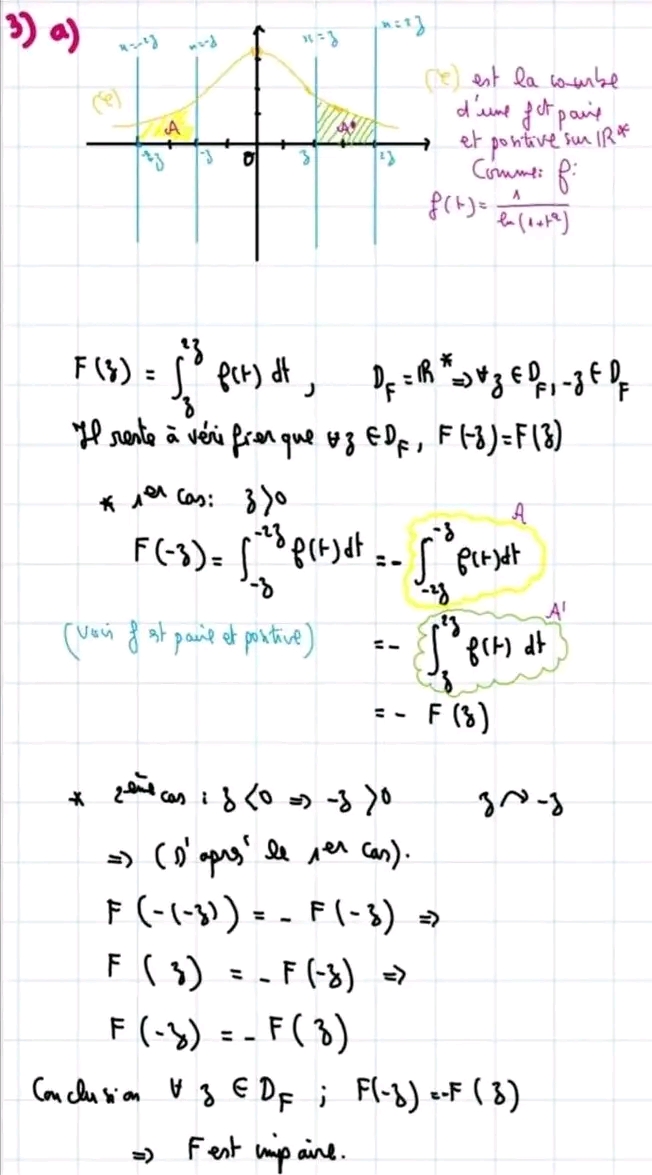 3) a)
x=-2z x=-z x=z x=2z
(ℰ)
A A'
-2z -z 0 z 2z
(ℰ) est la courbe
d'une fct paire
et positive sur IR*
Comme: f:
f(t) = 1/ln(1+t²)
F(z) = ∫_z^{2z} f(t) dt , D_F = IR* => ∀ z ∈ D_F, -z ∈ D_F
Il reste à vérifier que ∀ z ∈ D_F, F(-z) = F(z)
* 1er cas: z>0
A
F(-z) = ∫_{-z}^{-2z} f(t) dt = - ∫_{-2z}^{-z} f(t) dt
A'
(Voir f est paire et positive) = - ∫_z^{2z} f(t) dt
= - F(z)
* 2ème cas : z<0 => -z>0 z ↷ -z
=> (D'après le 1er cas).
F(-(-z)) = - F(-z) =>
F(z) = - F(-z) =>
F(-z) = - F(z)
Conclusion ∀ z ∈ D_F ; F(-z) = -F(z)
=> F est impaire.